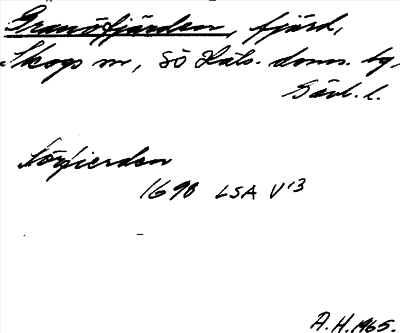 Granöfjärden, fjärd,
Skogs sn, SÖ Häls. doms. tg,
Gävl. l.
Nörfierden
1690 LSA V 13
A.H. 1965.